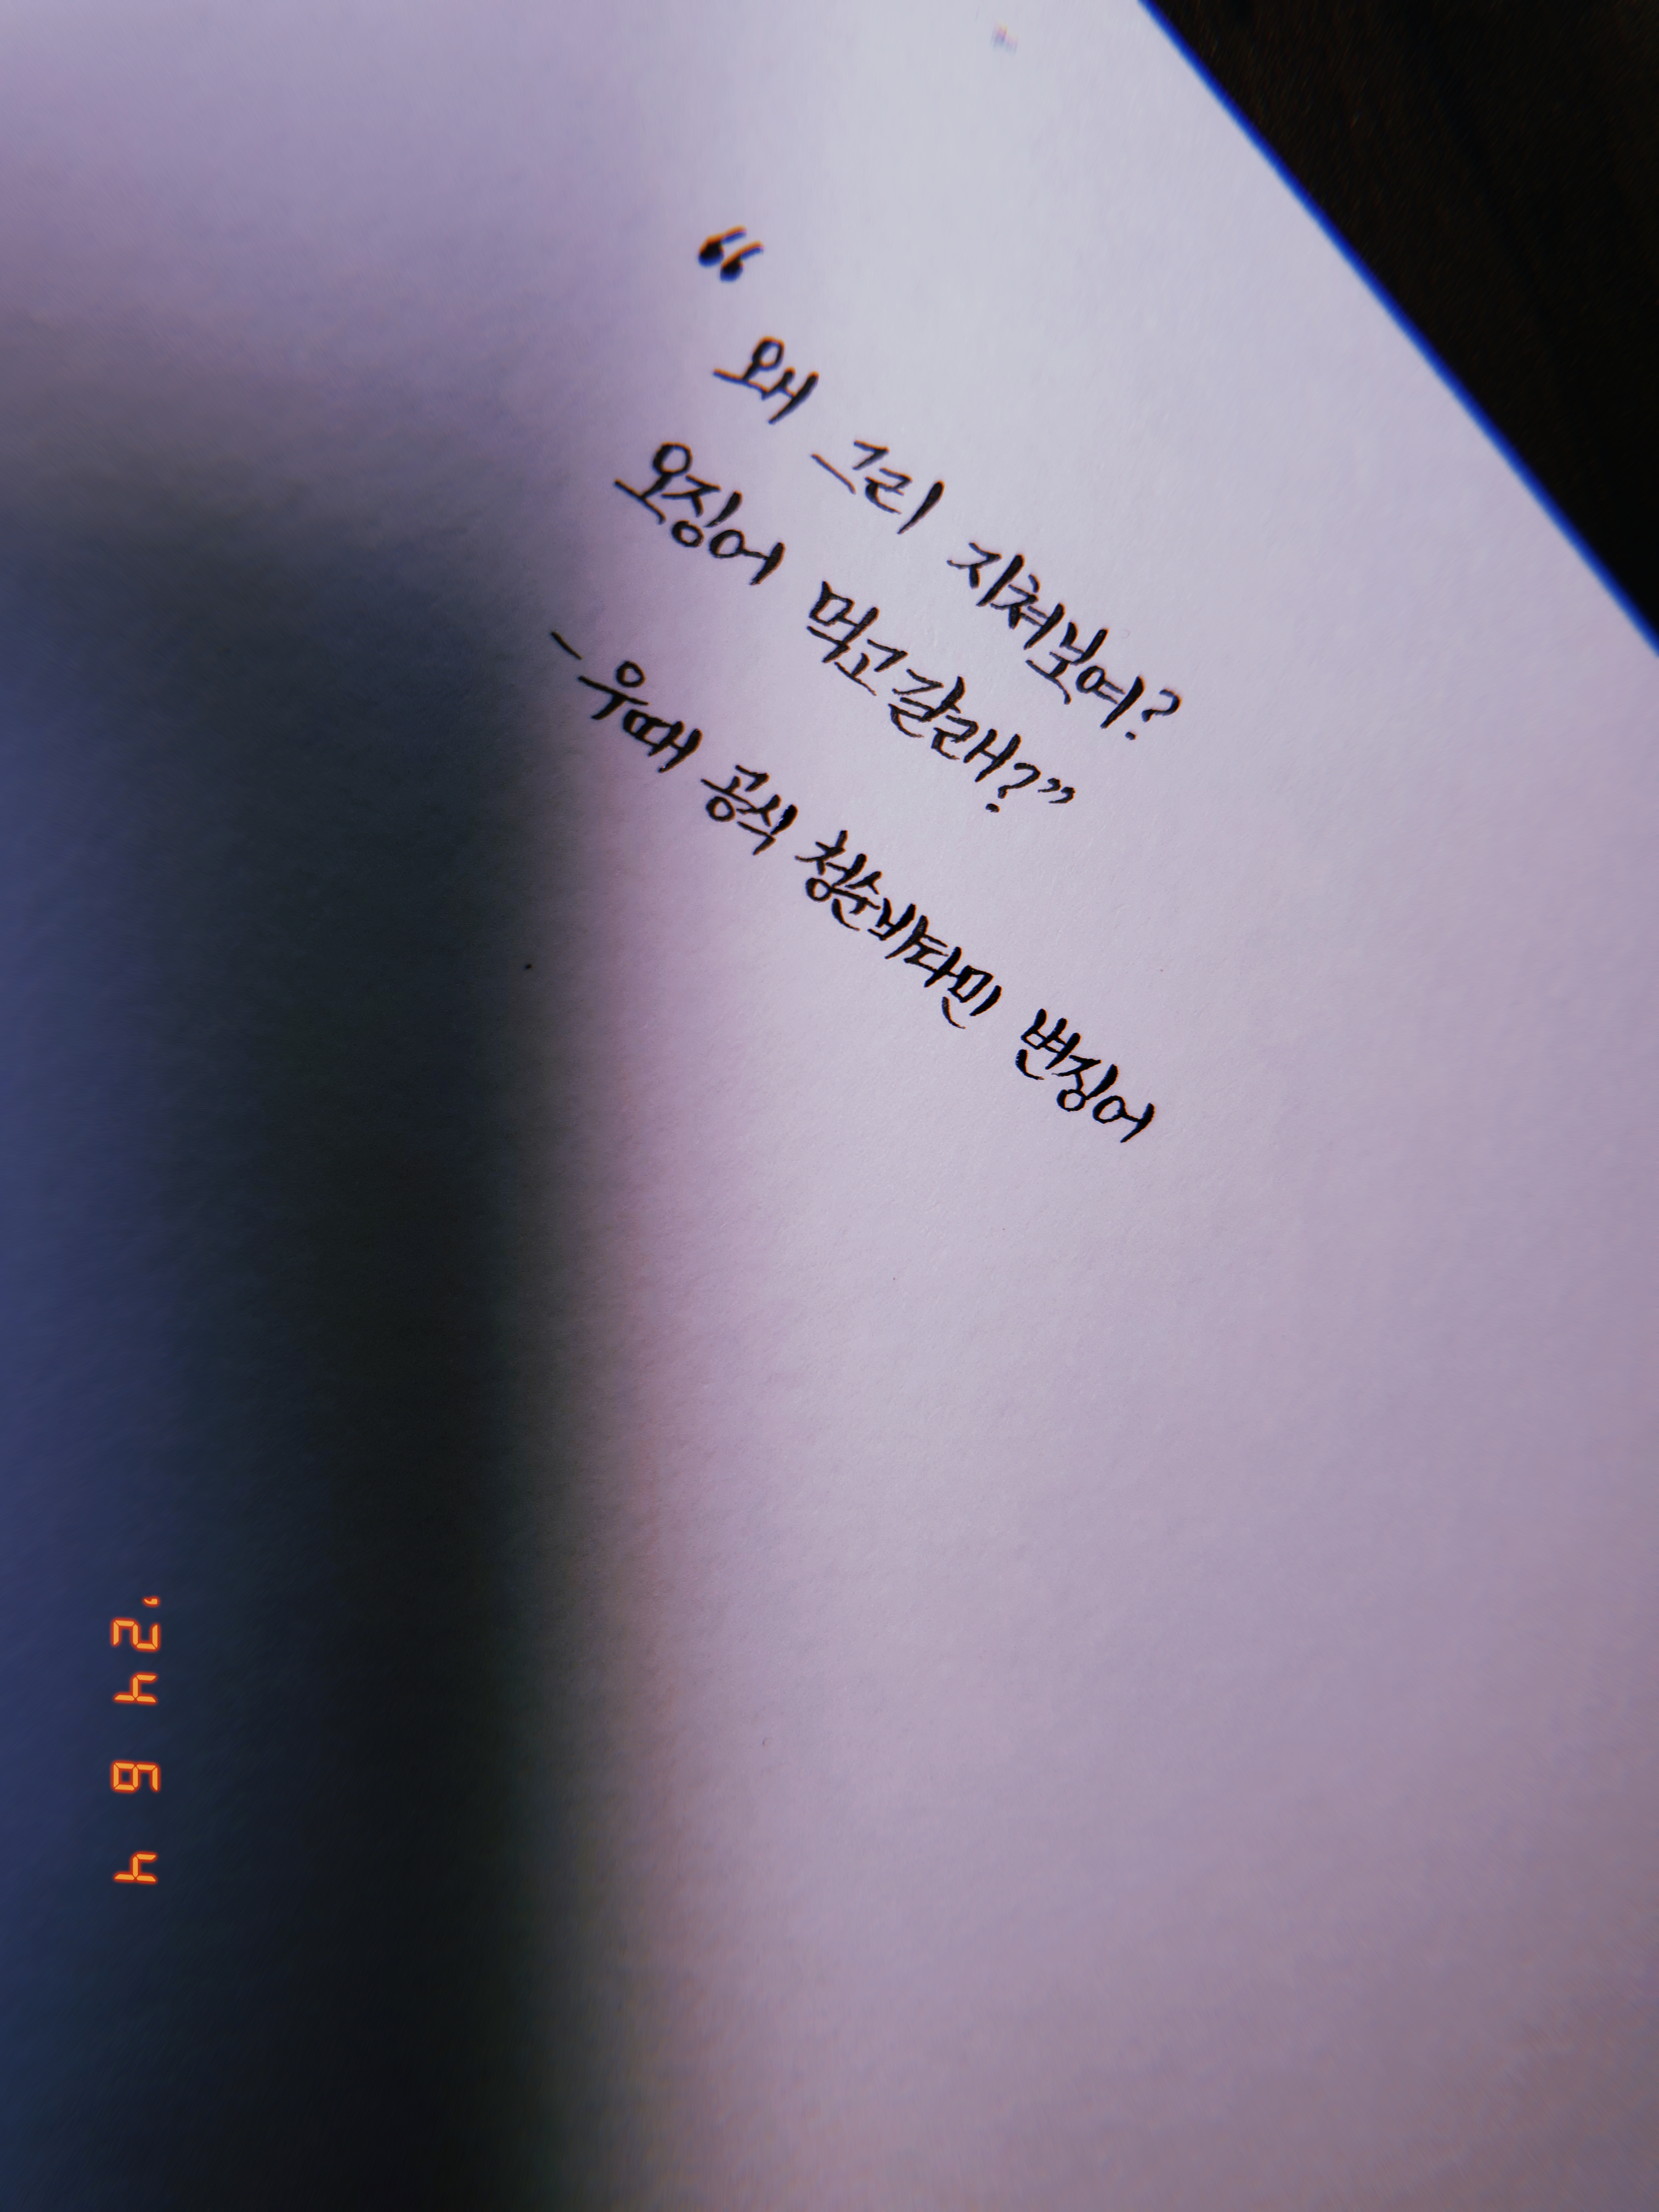 “
왜 그리 지쳐보여?
오징어 먹고갈래?”
- 우때 공식 청순비타민 변징어
'24 6 4